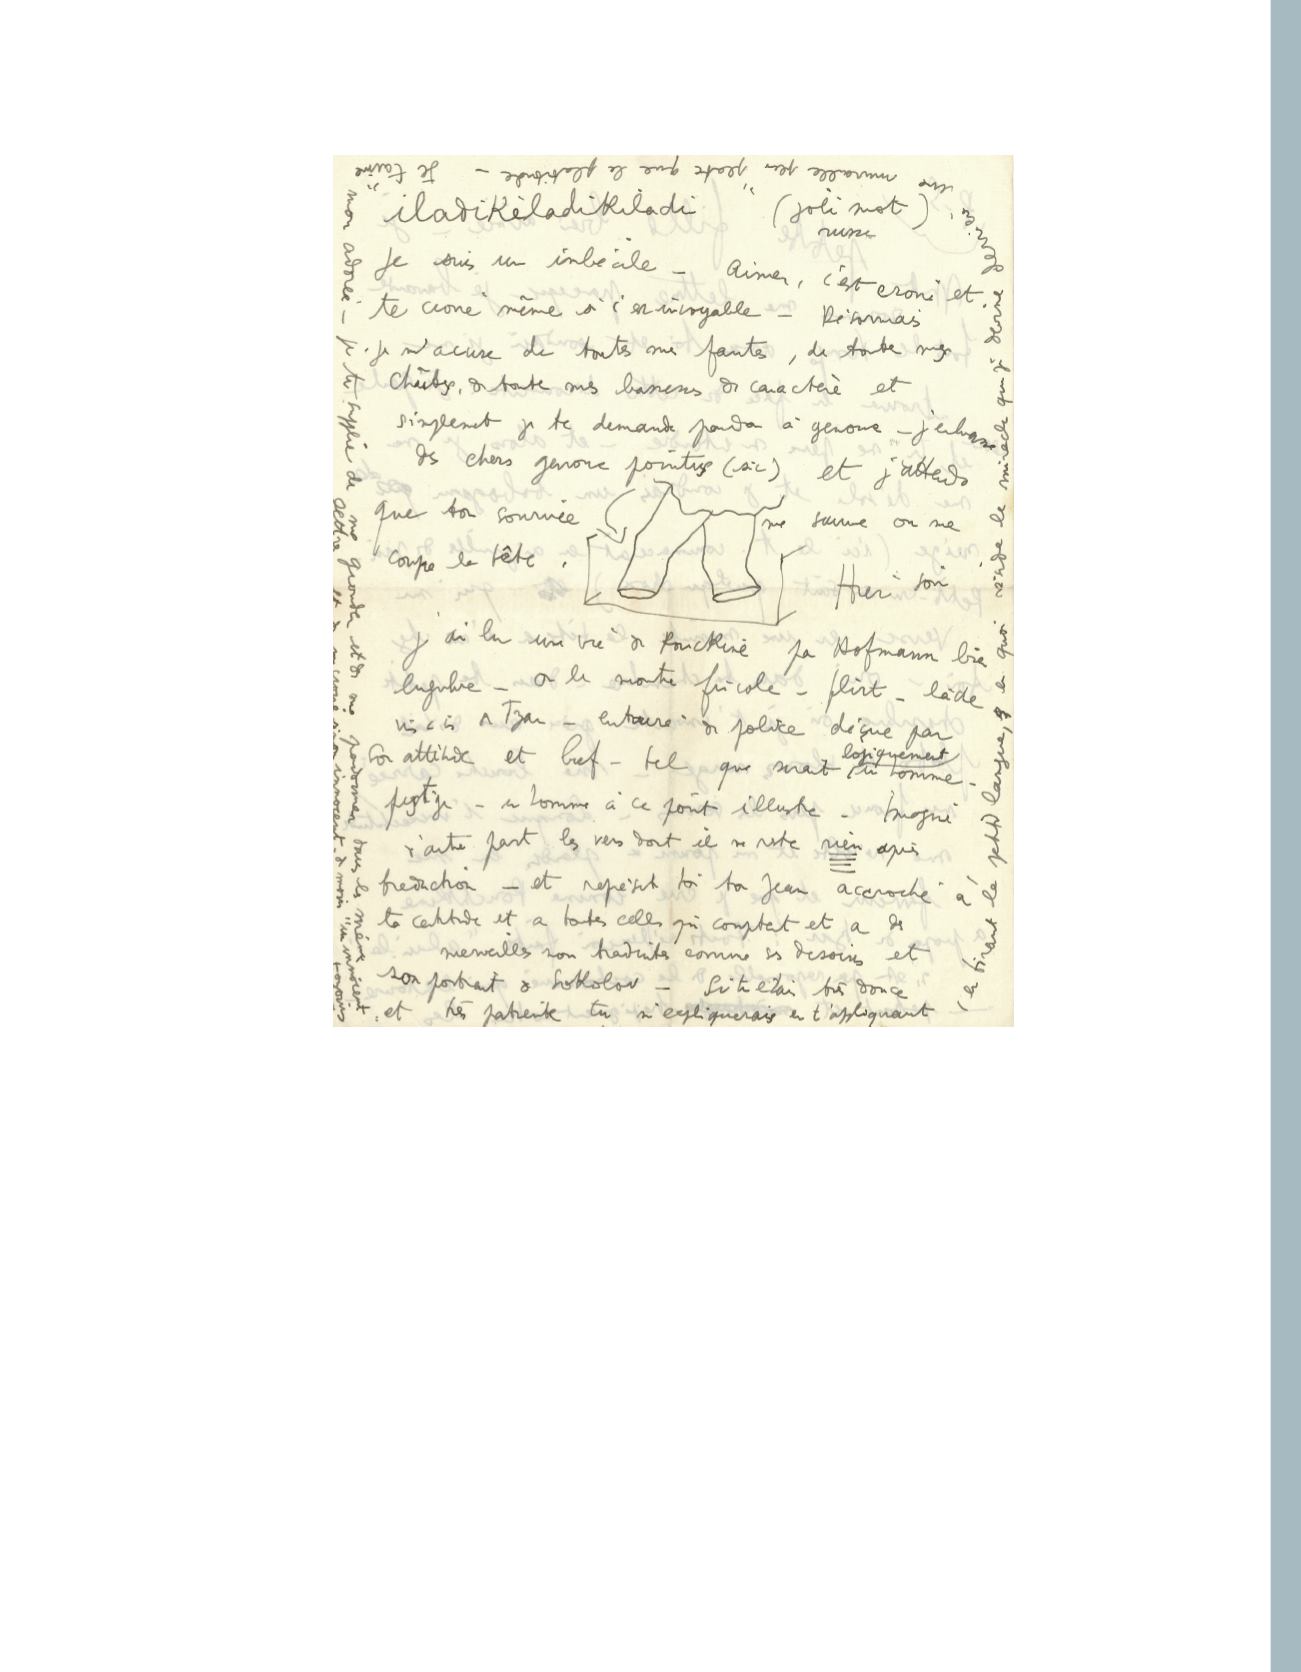 iladiKèladiKiladi (joli mot)
russe
Je suis un imbécile – Aimer, c'est croire et
te croire même si c'est incroyable – Désormais
je m'acuse de toutes mes fautes, de toute mes
chûtes, de toute mes bassesses de caractère et
simplement je te demande pardon à genoux – j'embrasse
des chers genoux pointus (sic) et j'attends
que ton sourire me sauve ou me
coupe la tête.
Hier soir
j'ai lu une vie de Pouchkine par Hofmann bien
lugubre – on le montre fricole – flirt – lâche
vis à vis du Tzar – entouré de police déçue par
son attitude et bref – tel que serait logiquement un homme
prestige – un homme à ce point illustre – Imagine
d'autre part les vers dont il ne reste rien après
traduction – et représente toi ton Jean accroché à
ta certitude et a toutes celles qui comptent et a des
merveilles non traduites comme ses dessins et
son portrait de Sokolov – Si tu étais très douce
et très patiente tu m'expliquerais en t'appliquant
(en tirant la petite langue) en quoi réside le miracle que je devine derrière
une muraille peu "plate que la platitude – Je t'aime"
mon adorée – je te supplie de me gronder et de me pardonner dans la même
et de me croire sinon innocent du moins "un innocent"